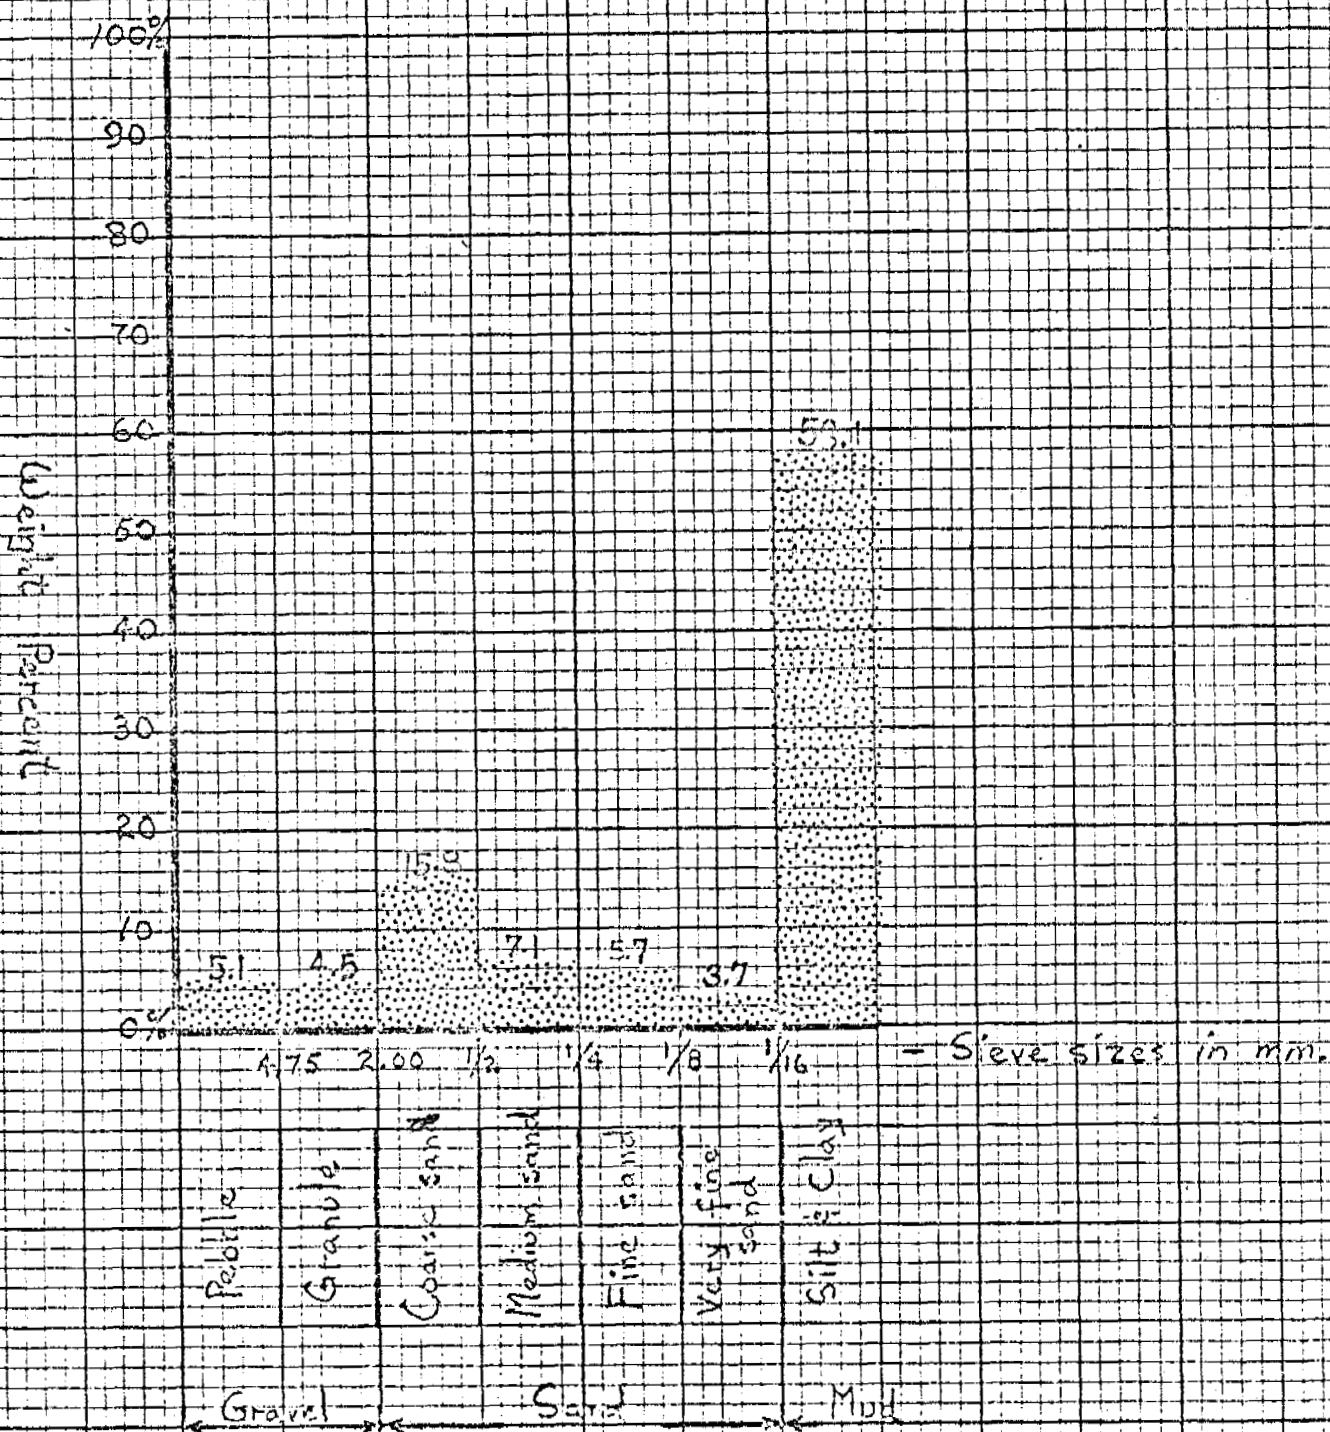 100%
90
80
70
60
50
40
30
20
10
0%
Weight Percent
5.1
4.5
15.8
7.1
5.7
3.7
4.75 2.00 1/2 1/4 1/8 1/16 - Sieve sizes in mm.
Pebble
Granule
Coarse sand
Medium sand
Fine sand
Very fine
sand
Silt & Clay
Gravel Sand Mud